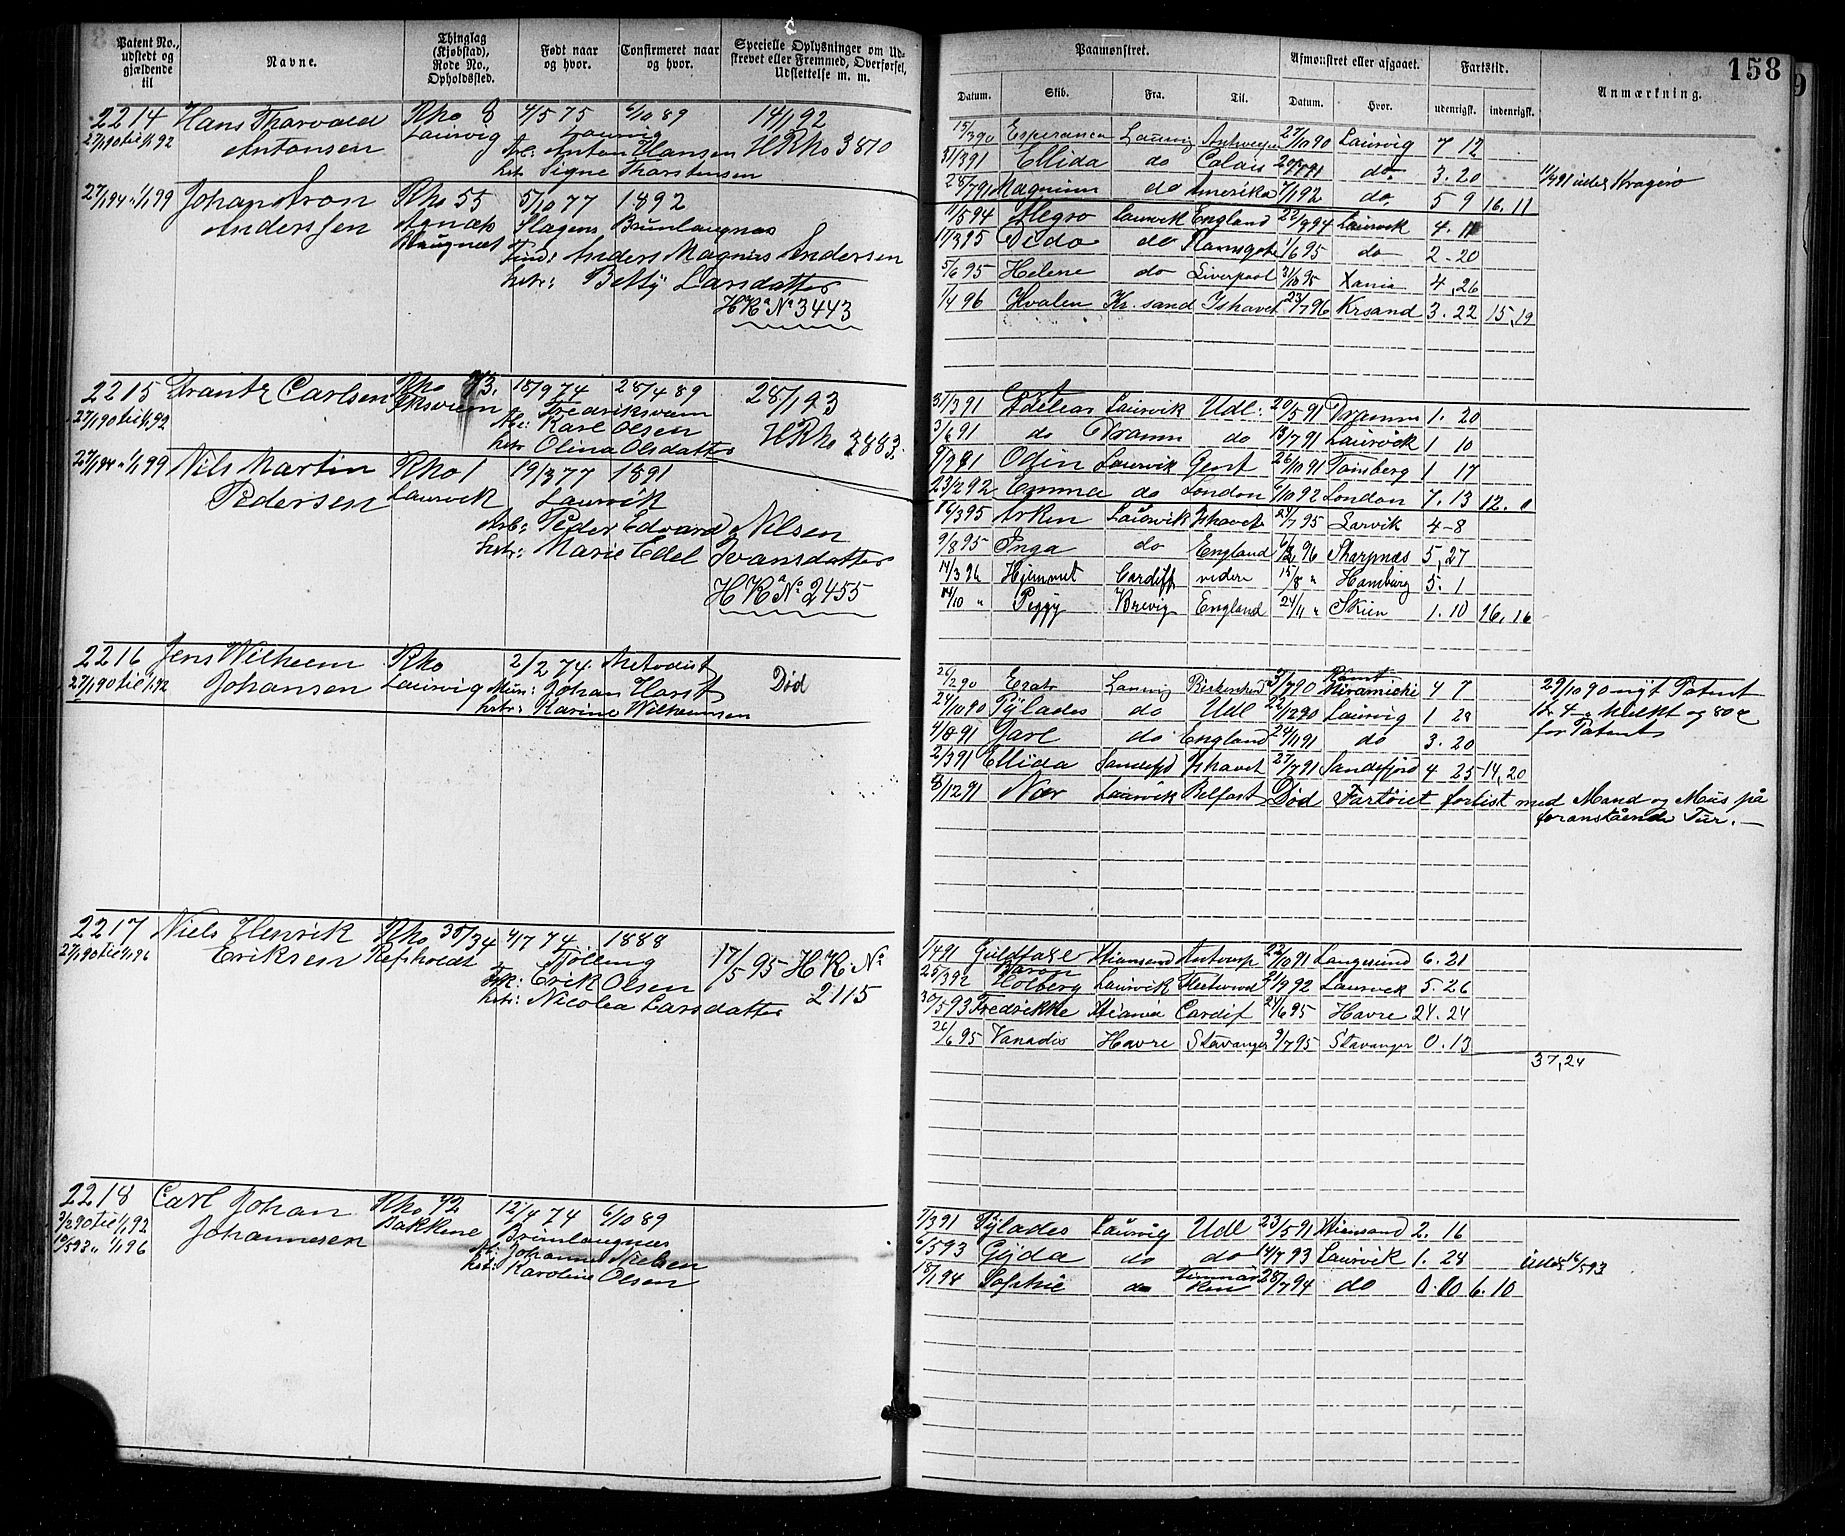 Patent No., udstedt og gjældende til
Navne.
Thinglag (Kjøbstad), Rode No., Opholdssted.
Født naar og hvor.
Confirmeret naar og hvor.
Specielle Oplysninger om Udskrevet eller Fremmed, Overførsel, Udslettelse m. m.
2214 Hans Thorvald Rno 8 4/5 75 6/10 89 14/1 92
27/1 90 til 1/1 92 Antonsen Laurvig Laurvig
Anton Hansen HRno 3810
Signe Thorstensen
27/1 94 " 1/1 99 Johan Aron Rno 55 5/10 77 1892
Anderssen Agnæs Slagen Brunlaugnæs
Anders Magnus Andersen
Betty Larsdatter
HR No 3443
2215 Frantz Carlsen Rno 18/9 74 28/4 89 28/1 93
27/1 90 til 1/1 92 Fredriksværn
Karl Olsen HRno 3883.
Olina Olsdatter
27/1 94 " 1/1 99 Nils Martin Rno 1 19/3 77 1891
Pedersen Laurvik Laurvik
Peder Edvard Nilsen
Marie Edel Ivarsdatter
HR No 2455
2216 Jens Wilhelm Rno 2/2 74 Metodist
27/1 90 til 1/1 92 Johansen Laurvig Johan Horst Død
Karine Wilhelmsen
2217 Niels Henrik Rno 38/34 4/7 74 1888 17/5 95 HR No
27/1 90 til 1/1 96 Eriksen Refsholdt Tjølling 2115
Erik Olsen
Nicolea Larsdatter
2218 Carl Johan Rno 42 12/4 74 6/10 89
3/2 90 til 1/1 92 Johannesen Bakkene Brunlaugnæs
10/5 93 " 1/1 96 Johannes Nielsen
Karoline Olsen
158
Paamønstret.
Afmønstret eller afgaaet.
Fartstid.
Anmærkning.
Datum. Skib. Fra. Til. Datum. Hvor. udenrigsk. indenrigsk.
15/3 90 Esperance Laurvig Antwerpen 27/10 90 Laurvig 7 12
31/3 91 Ellida do Calais do 3. 20 Kragerø
28/7 91 Magnum do Amerika 7/1 92 do 5 9 16. 11
1/5 94 Allegro Laurvik England 22/8 94 Laurvik 4.
11/3 95 Dido do Ramsgate 1/6 95 do 2-20
5/6 95 Helene do Liverpool 31/10 95 Xania 4,26
1/4 96 Hvalen Kr. sand Ishavet 23/7 96 Krsand 3. 22 15,19
31/3 91 Laurvik Udl. 20/5 91 Dramm 1. 20
3/6 91 do Dramm do 13/7 91 Laurvik 1 10
9/9 91 Odin Laurvik Gent 26/10 91 Tønsberg 1 17
23/2 92 Emma do London 6/10 92 London 7. 13 12. 0
16/3 95 Arken Laurvik Ishavet 24/7 95 Larvik 4-8
9/8 95 Inga do England 6/2 96 Sharpnæs 5,27
14/3 96 Hjemmet Cardiff videre 15/8 " Hamburg 5. 1
14/10 " Peggy Brevig England 24/11 " Skien 1. 10 16, 16
26/2 90 Erato Laurvig Birkenhead 3/7 90 Miramichi 4 7 29/10 90 nyt Patent
24/10 90 Pylades do Udl 22/12 90 Laurvig 1 28
4/8 91 Jarl do England 24/11 91 do 3. 20 for Patent
2/3 91 Ellida Sandefjd Ishavet 27/7 91 Sandefjord 4 25 14,20
8/12 91 Nor Laurvik Belfast Død Fartøiet forlist med Mand og Mus på
foranstående Tur.—
1/4 91 Guldfaxe Xiansand Antwerp 22/10 91 Langesund 6. 21
25/3 92 Baron Holberg Laurvik Fleetwood 21/9 92 Laurvik 5-26
30/5 93 Fredrikke Xiania Cardif 24/6 95 Havre 24. 24
26/6 95 Vanadis Havre Stavanger 9/7 95 Stavanger 0.13
37,24
7/3 91 Pylades Laurvig Udl 23/5 91 Xiansand 2. 16
6/5 93 Gyda do do 14/7 93 Laurvik 1. 28
18/1 94 Sophie do Finmarken 28/7 94 do 0.00 6. 10